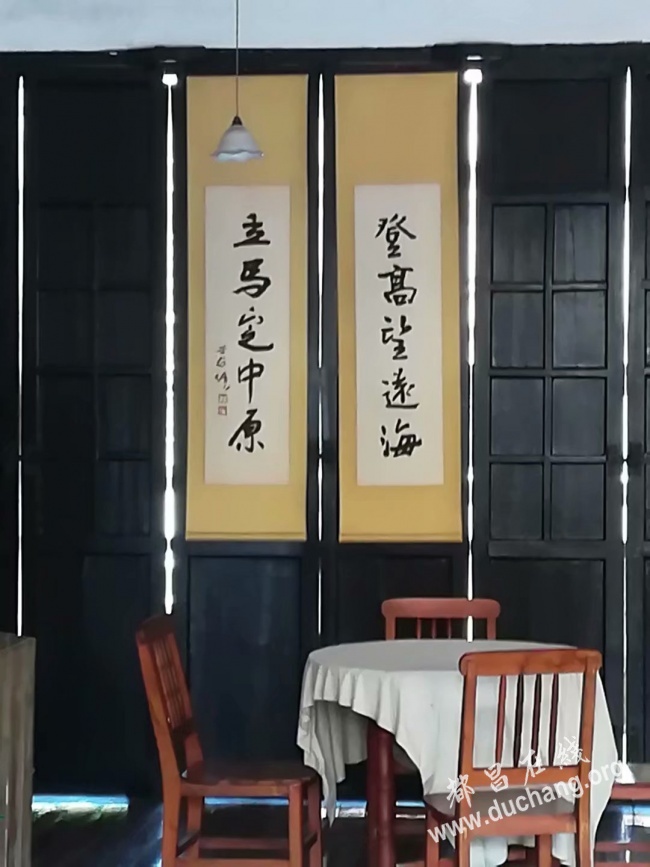 登高望遠海
立馬定中原
都昌在线
www.duchang.org